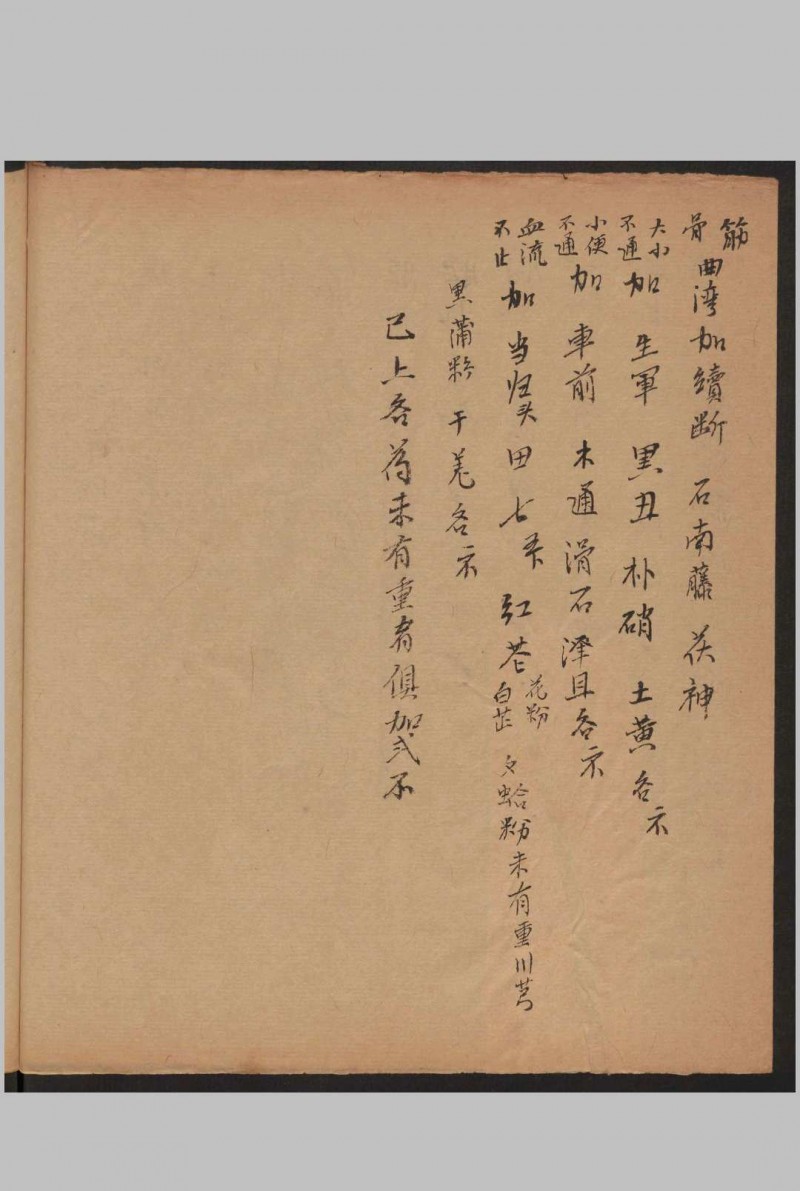 筋骨曲湾加續断 石南藤 茯神
大小不通加 生軍 黑丑 朴硝 土黄各
小便不通加 車前 木通 滑石 泽且各
血流不止加 当归头 田七 红花 花粉 白芷 文蛤粉未有重川芎
黑蒲 干羌各
已上各 未有重者俱加弍